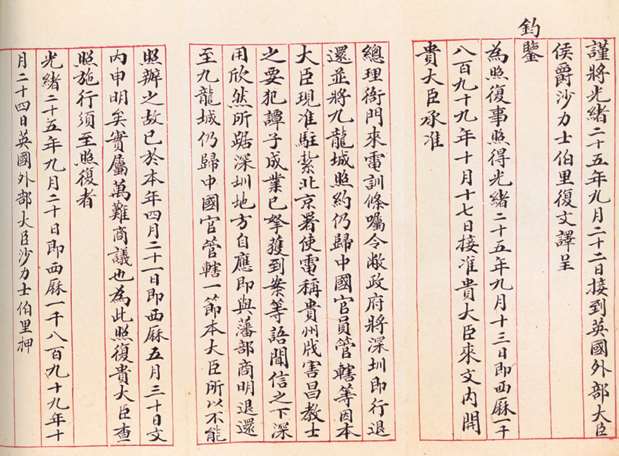 謹將光緒二十五年九月二十二日接到英國外部大臣
侯爵沙力士伯里復文譯呈
鈞鑒
為照復事照得光緒二十五年九月十三日即西厤一千
八百九十九年十月十七日接准貴大臣來文內開
貴大臣承准
總理衙門來電訓條囑令敝政府將深圳即行退
還並將九龍城照約仍歸中國官員管轄等因本
大臣現准駐紮北京署使電稱貴州戕害昌教士
之要犯譚子成業已拏獲到案等語聞信之下深
用欣然所踞深圳地方自應即與藩部商明退還
至九龍城仍歸中國官管轄一節本大臣所以不能
照辦之故已於本年四月二十一日即西厤五月三十日文
內申明矣實屬萬難商議也為此照復貴大臣查
照施行須至照復者
光緒二十五年九月二十日即西厤一千八百九十九年十
月二十四日英國外部大臣沙力士伯里押